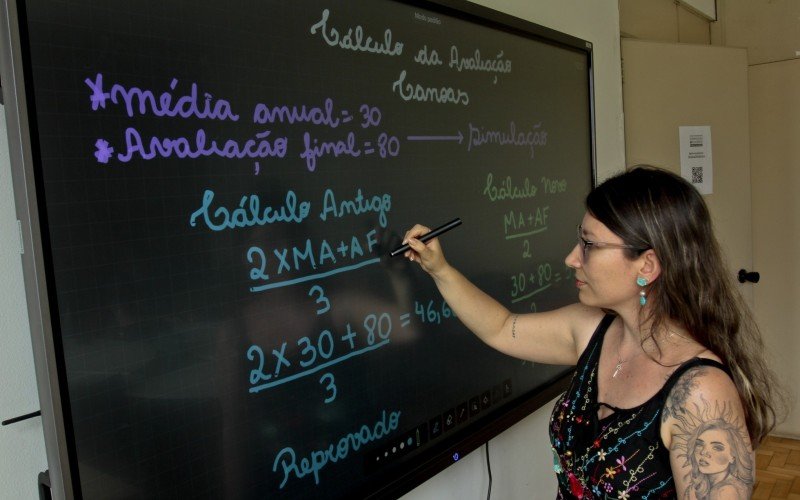 Modo padrão
Cálculo da Avaliação
Canoas
*média anual = 30
*Avaliação final = 80 → Simulação
Cálculo Antigo
2 X MA + AF
3
2 X 30 + 80 = 46,6
3
Reprovado
Cálculo Novo
MA + AF
2
30 + 80 =
2